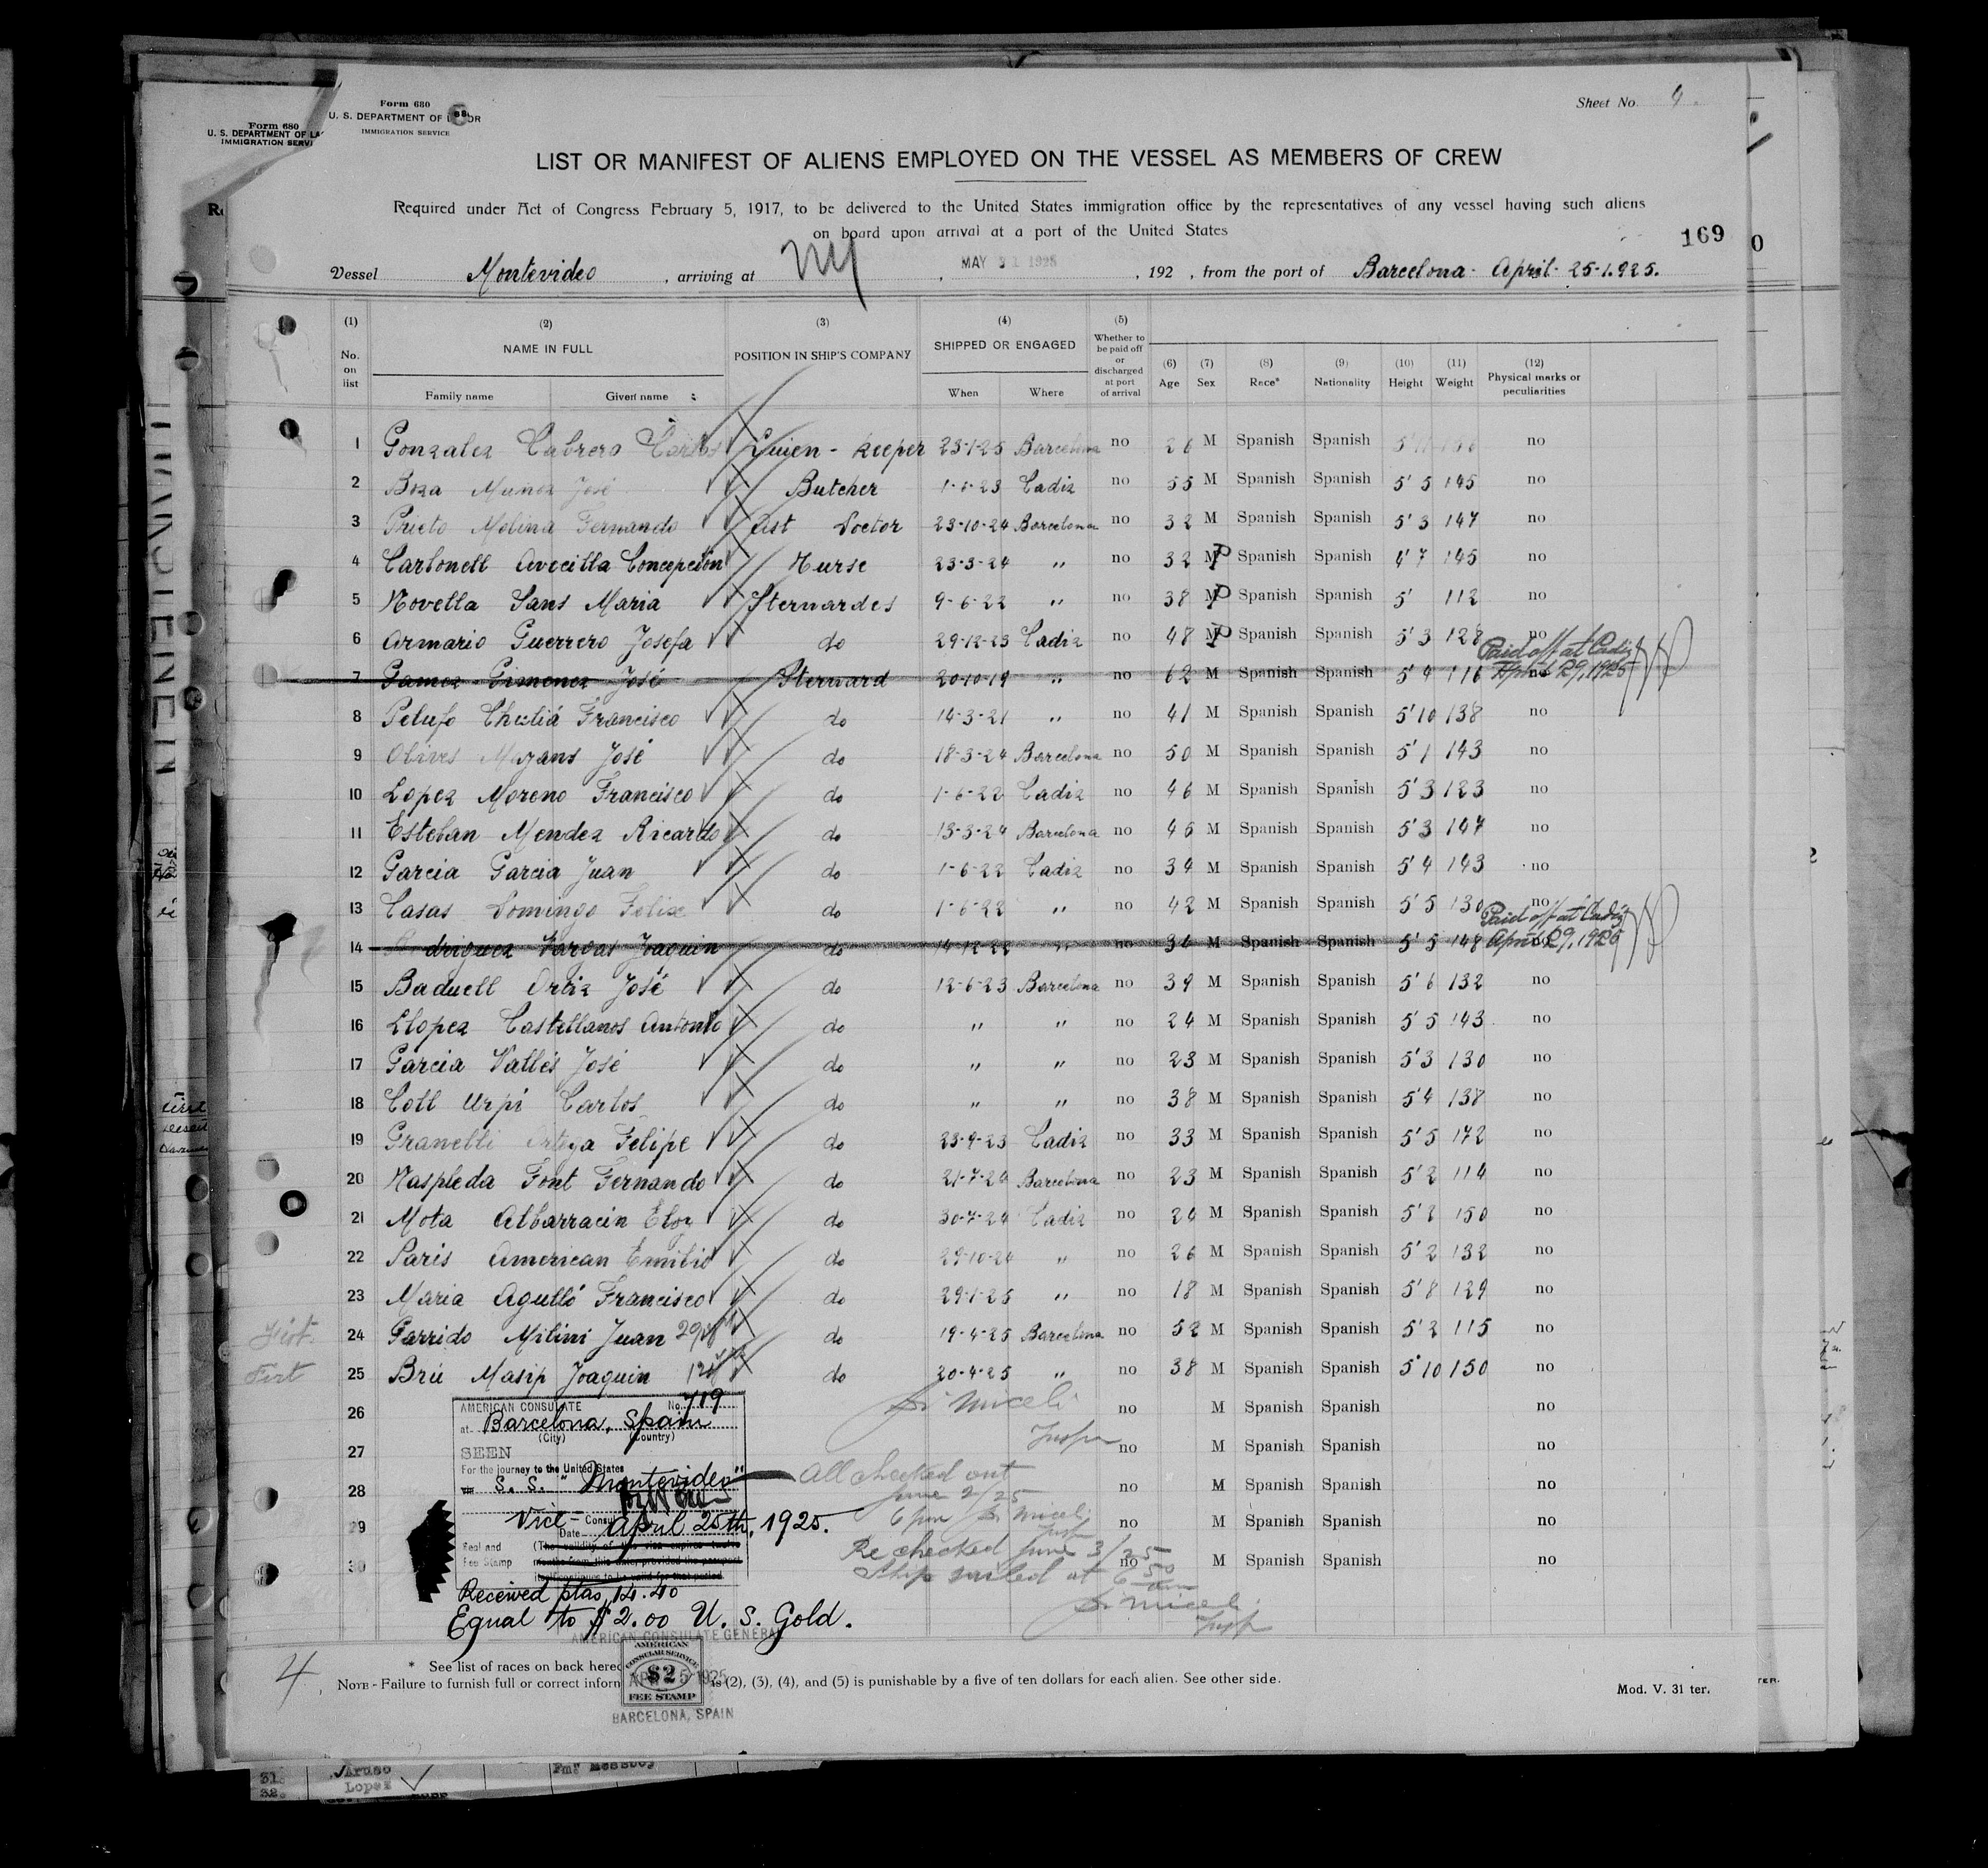 Form 680
U. S. DEPARTMENT OF LA
IMMIGRATION SERVI
Form 680
U. S. DEPARTMENT OF LABOR
IMMIGRATION SERVICE
Sheet No 4.
LIST OR MANIFEST OF ALIENS EMPLOYED ON THE VESSEL AS MEMBERS OF CREW
Required under Act of Congress February 5, 1917, to be delivered to the United States immigration office by the representatives of any vessel having such aliens
on board upon arrival at a port of the United States
169
Vessel Montevideo, arriving at NY, MAY 31 1925, 192 , from the port of Barcelona - April - 25-1.925.
(1) No. on list (2) NAME IN FULL Family name Given name (3) POSITION IN SHIP'S COMPANY (4) SHIPPED OR ENGAGED When Where (5) Whether to be paid off or discharged at port of arrival (6) Age (7) Sex (8) Race* (9) Nationality (10) Height (11) Weight (12) Physical marks or peculiarities
1 Gonzalez Cabrero Carlos Linen-Keeper 23-1-25 Barcelona no 26 M Spanish Spanish no
2 Boza Muñoz José Butcher 1-6-23 Cadiz no 55 M Spanish Spanish 5' 5 145 no
3 Prieto Molina Fernando Doctor 23-10-24 Barcelona no 32 M Spanish Spanish 5' 3 147 no
4 Carbonell Avecilla Concepcion Nurse 23-3-24 " no 32 M Spanish Spanish 4' 7 145 no
5 Novella Sans Maria Sterwardes 9-6-22 " no 38 M Spanish Spanish 5' 112 no
6 Armario Guerrero Josefa do 29-12-23 Cadiz no 48 M Spanish Spanish 5' 3 128 no
Paid off at Cadiz
7 Gamez Gimenez José Sterward 20-10-19 " no 62 M Spanish Spanish 5' 4 116 no April 29, 1925
8 Pelufo Chuliá Francisco do 14-3-21 " no 41 M Spanish Spanish 5' 10 138 no
9 Olives Mayans José do 18-3-24 Barcelona no 50 M Spanish Spanish 5' 1 143 no
10 Lopez Moreno Francisco do 1-6-22 Cadiz no 46 M Spanish Spanish 5' 3 123 no
11 Esteban Mendez Ricardo do 13-3-24 Barcelona no 45 M Spanish Spanish 5' 3 147 no
12 Garcia Garcia Juan do 1-6-22 Cadiz no 34 M Spanish Spanish 5' 4 143 no
13 Casas Domingo Felix do 1-6-22 " no 42 M Spanish Spanish 5' 5 130 no
Paid off at Cadiz
14 driguez Vargas Joaquin do 14-12-22 " no 34 M Spanish Spanish 5' 5 148 no April 29, 1925
15 Baduell Ortiz José do 12-6-23 Barcelona no 39 M Spanish Spanish 5' 6 132 no
16 Llopez Castellanos Antonio do " " no 24 M Spanish Spanish 5' 5 143 no
17 Garcia Vallés José do " " no 23 M Spanish Spanish 5' 3 130 no
18 Coll Urpi Carlos do " " no 38 M Spanish Spanish 5' 4 138 no
19 Granelli Ortega Felipe do 23-9-23 Cadiz no 33 M Spanish Spanish 5' 5 172 no
20 Naspleda Font Fernando do 21-7-24 Barcelona no 23 M Spanish Spanish 5' 2 114 no
21 Mota Albarracin Eloy do 30-7-24 Cadiz no 24 M Spanish Spanish 5' 2 150 no
22 Paris American Emilio do 29-10-24 " no 26 M Spanish Spanish 5' 2 132 no
23 Maria Agulló Francisco do 29-1-25 " no 18 M Spanish Spanish 5' 8 129 no
First 24 Garrido Milini Juan do 19-4-25 Barcelona no 52 M Spanish Spanish 5' 2 115 no
First 25 Brú Masip Joaquin do 20-4-25 " no 38 M Spanish Spanish 5 10 150 no
26 no M Spanish Spanish no
27 no M Spanish Spanish no
28 no M Spanish Spanish no
29 no M Spanish Spanish no
30 no M Spanish Spanish no
AMERICAN CONSULATE No. 719
at Barcelona, Spain
(City) (Country)
SEEN
For the journey to the United States
via S. S. "Montevideo"
Vice-Consul
Date April 25th, 1925.
Seal and Fee Stamp (The validity of this visa expires twelve
months from this date provided the passport
itself continues to be valid for that period
Received ptas, 14.40
Equal to $2.00 U. S. Gold.
Miceli
Insp
All checked out
June 2/25
6 pm Miceli
Insp
Rechecked June 3/25
Ship sailed at 6 50 am
Miceli
Insp
AMERICAN CONSULATE GENERAL
AMERICAN
CONSULAR SERVICE
$2
FEE STAMP
APR 25 1925
BARCELONA, SPAIN
4
* See list of races on back hereo
NOTE - Failure to furnish full or correct inform ns (2), (3), (4), and (5) is punishable by a five of ten dollars for each alien. See other side.
Mod. V. 31 ter.
TER.
31 Aruso
32 Lopez